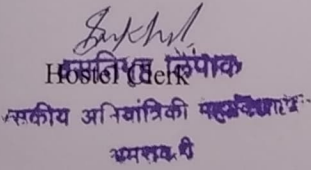 Hostel Clerk
वसतिगृह लिपीक
सकीय अभियांत्रिकी महाविद्यालय
अमरावती